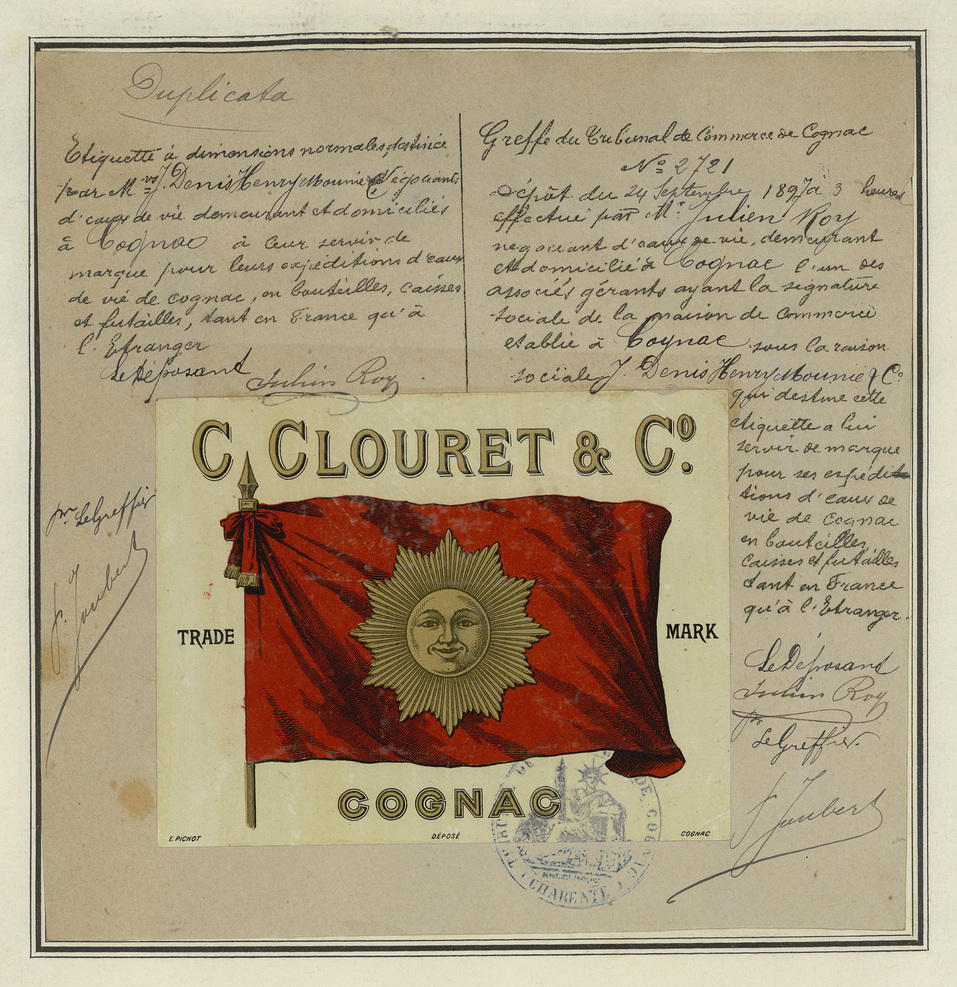 Duplicata
Etiquette à dimensions normales, destinée
par M.rs J. Denis Henry Mounié & Co négociants
d'eaux de vie demeurant et domiciliés
à Cognac à leur servir de
marque pour leurs expéditions d'eaux
de vie de cognac, en bouteilles, caisses
et futailles, tant en France qu'à
l'Etranger
Le Déposant
Julien Roy
Greffe du Tribunal de Commerce de Cognac
No 2721
Dépôt du 24 Septembre 1897 à 3 heures
effectué par Mr. Julien Roy
négociant d'eaux de vie, demeurant
et domicilié à Cognac l'un des
associés gérants ayant la signature
sociale de la maison de commerce
etablie à Cognac sous la raison
sociale J. Denis Henry Mounié & Co
qui destine cette
étiquette a lui
servir de marque
pour ses expédi-
tions d'eaux de
vie de cognac
en bouteilles,
caisses et futailles
tant en France
qu'à l'Etranger.
Le Déposant
Julien Roy
pr Le Greffier
J. Joubert
pr Le Greffier
J. Joubert
C. CLOURET & Co.
TRADE MARK
COGNAC
E. PICHOT DÉPOSÉ COGNAC
TRIBUNAL DE COGNAC
(CHARENTE)